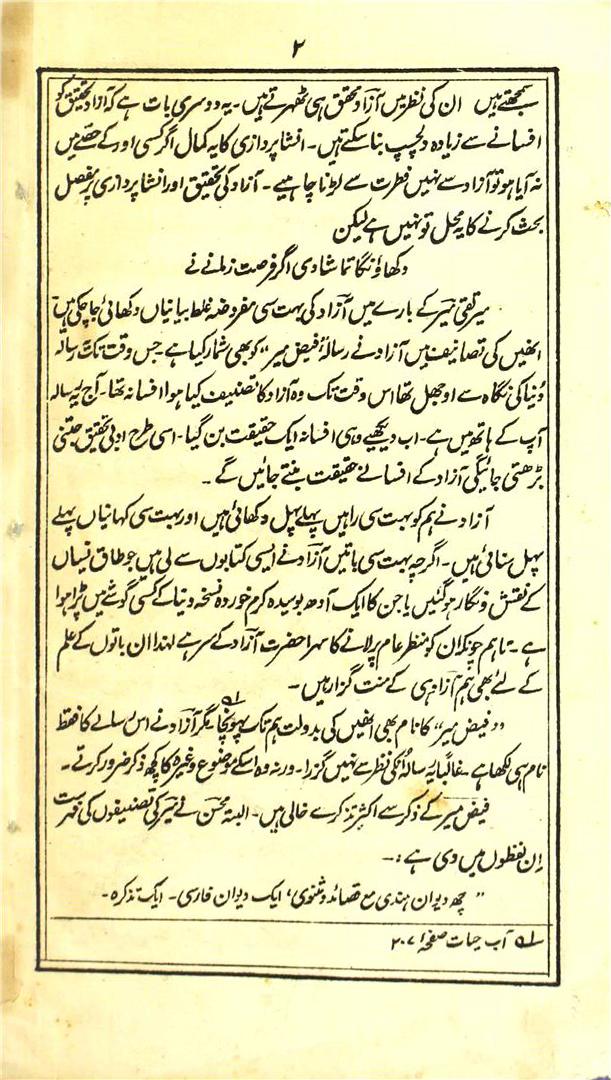 ۲
سمجھتے ہیں ان کی نظر میں آزاد محقق ہی ٹھہرتے ہیں۔ یہ دوسری بات ہے کہ آزاد تحقیق کو
افسانے سے زیادہ دلچسپ بنا سکتے ہیں۔ انشا پردازی کا یہ کمال اگر کسی اور کے حصے میں
نہ آیا ہو تو آزاد سے نہیں فطرت سے لڑنا چاہیے۔ آزاد کی تحقیق اور انشا پردازی پر مفصل
بحث کرنے کا یہ محل تو نہیں ہے لیکن
دکھاؤنگا تماشا دی اگر فرصت زمانے نے
میر تقی میر کے بارے میں آزاد کی بہت سی مفروضہ غلط بیانیاں دکھائی جا چکی ہیں
انھیں کی تصانیف میں آزاد نے رسالۂ ”فیض میر“ کو بھی شمار کیا ہے۔ جس وقت تک یہ رسالہ
دنیا کی نگاہ سے اوجھل تھا اس وقت تک وہ آزاد کا تصنیف کیا ہوا افسانہ تھا۔ آج یہ رسالہ
آپ کے ہاتھ میں ہے۔ اب دیکھیے وہی افسانہ ایک حقیقت بن گیا۔ اسی طرح ادبی تحقیق جتنی
بڑھتی جائیگی آزاد کے افسانے حقیقت بنتے جائیں گے۔
آزاد نے ہم کو بہت سی راہیں پہلے پہل دکھائی ہیں اور بہت سی کہانیاں پہلے
پہل سنائی ہیں۔ اگرچہ بہت سی باتیں آزاد نے ایسی کتابوں سے لی ہیں جو طاق نسیاں
کے نقش و نگار ہو گئیں یا جن کا ایک آدھ بوسیدہ کرم خوردہ نسخہ دنیا کے کسی گوشے میں پڑا ہوا
ہے۔ تاہم چونکہ ان کو منظر عام پر لانے کا سہرا حضرت آزاد کے سر ہے لہذا ان باتوں کے علم
کے لئے بھی ہم آزاد ہی کے منت گزار ہیں۔
”فیض میر“ کا نام بھی انھیں کی بدولت ہم تک پہونچا۱؎ مگر آزاد نے اس رسالے کا فقط
نام ہی لکھا ہے۔ غالباً یہ رسالہ انکی نظر سے نہیں گزرا۔ ورنہ وہ اسکے موضوع وغیرہ کا کچھ ذکر ضرور کرتے۔
فیض میر کے ذکر سے اکثر تذکرے خالی ہیں۔ البتہ محسن نے میر کی تصنیفوں کی فہرست
ان لفظوں میں دی ہے:۔
”چھ دیوان ہندی مع قصائد و مثنوی، ایک دیوان فارسی۔ ایک تذکرہ۔
۱؎ آب حیات صفحہ ۲۰۷